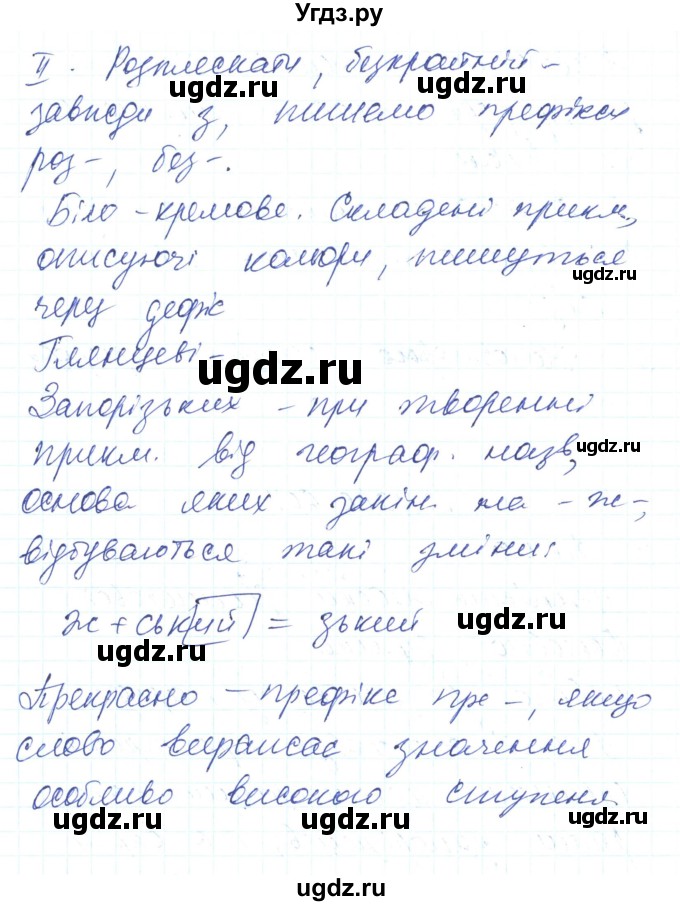 Угдз.ру
II. Розплескати, безкрайній –
завжди з, пишемо префікси
роз-, без-.
Біло-кремове. Складені прикм.,
описуючі кольори, пишуться
через дефіс
Глянцеві –
Запорізьких – при творенні
прикм. від географ. назв,
основа яких закін. на -ж-,
відбуваються такі зміни:
ж + ськ(ий) = зький
Прекрасно – префікс пре-, якщо
слово виражає значення
особливо високого ступеня
ugdz.ru
ugdz.ru
ugdz.ru
ugdz.ru
ugdz.ru
ugdz.ru
ugdz.ru
ugdz.ru
ugdz.ru
ugdz.ru
ugdz.ru